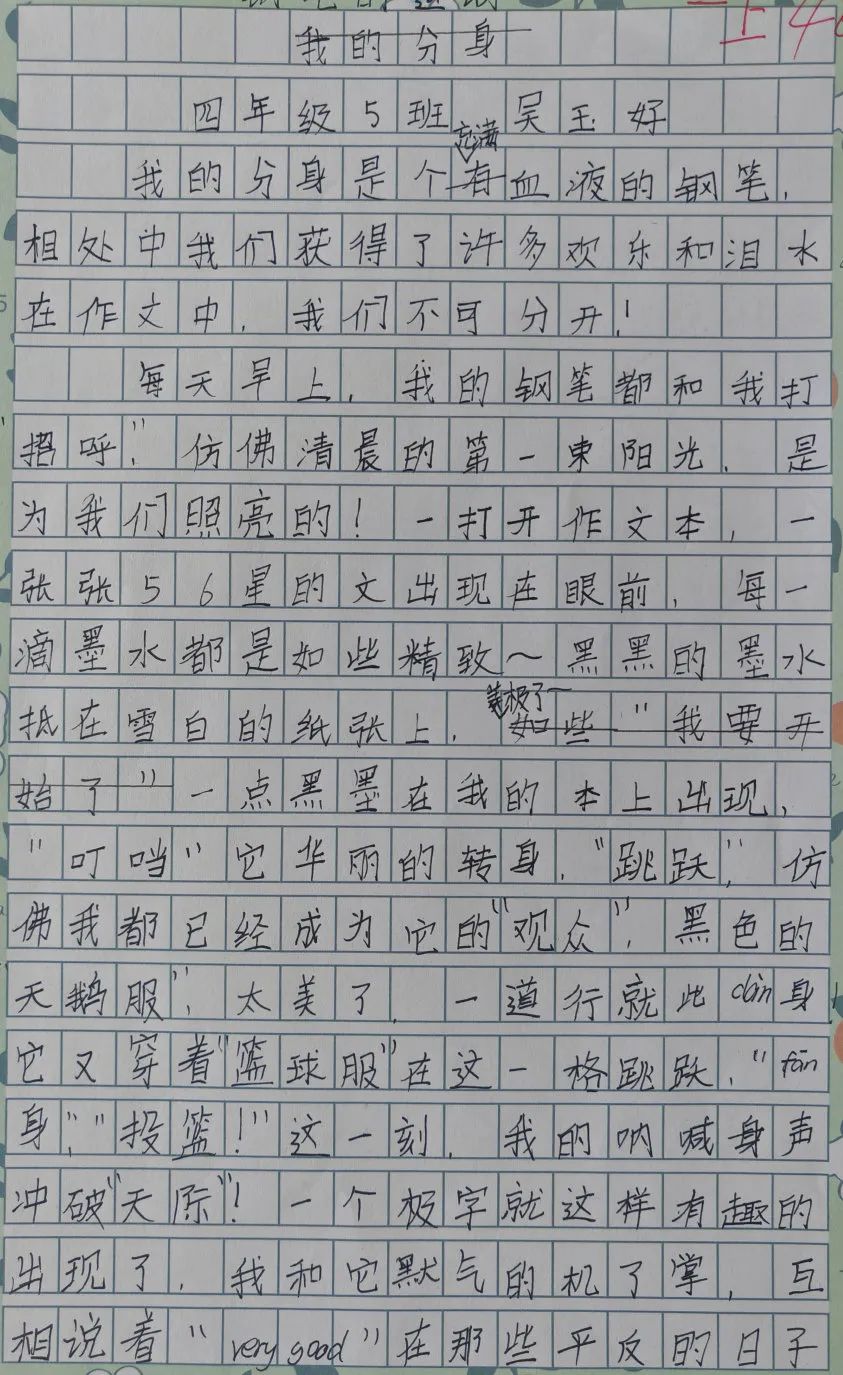 我的分身
四年级5班 吴玉好
我的分身是个充满血液的钢笔,
相处中我们获得了许多欢乐和泪水
在作文中,我们不可分开!
每天早上,我的钢笔都和我打
招呼”,仿佛清晨的第一束阳光,是
为我们照亮的!一打开作文本,一
张张56星的文出现在眼前,每一
滴墨水都是如些精致~黑黑的墨水
抵在雪白的纸张上,美极了~ 如些“我要开
始了”一点黑墨在我的本上出现,
“叮当”它华丽的转身,“跳跃”,仿
佛我都已经成为它的“观众”,黑色的
天鹅服”,太美了,一道行就此dàn身
它又穿着“篮球服”在这一格跳跃,“fān
身”,“投篮!”这一刻,我的呐喊身声
冲破“天际”!一个极字就这样有趣的
出现了,我和它默气的机了掌,互
相说着“very good”在那些平反的日子